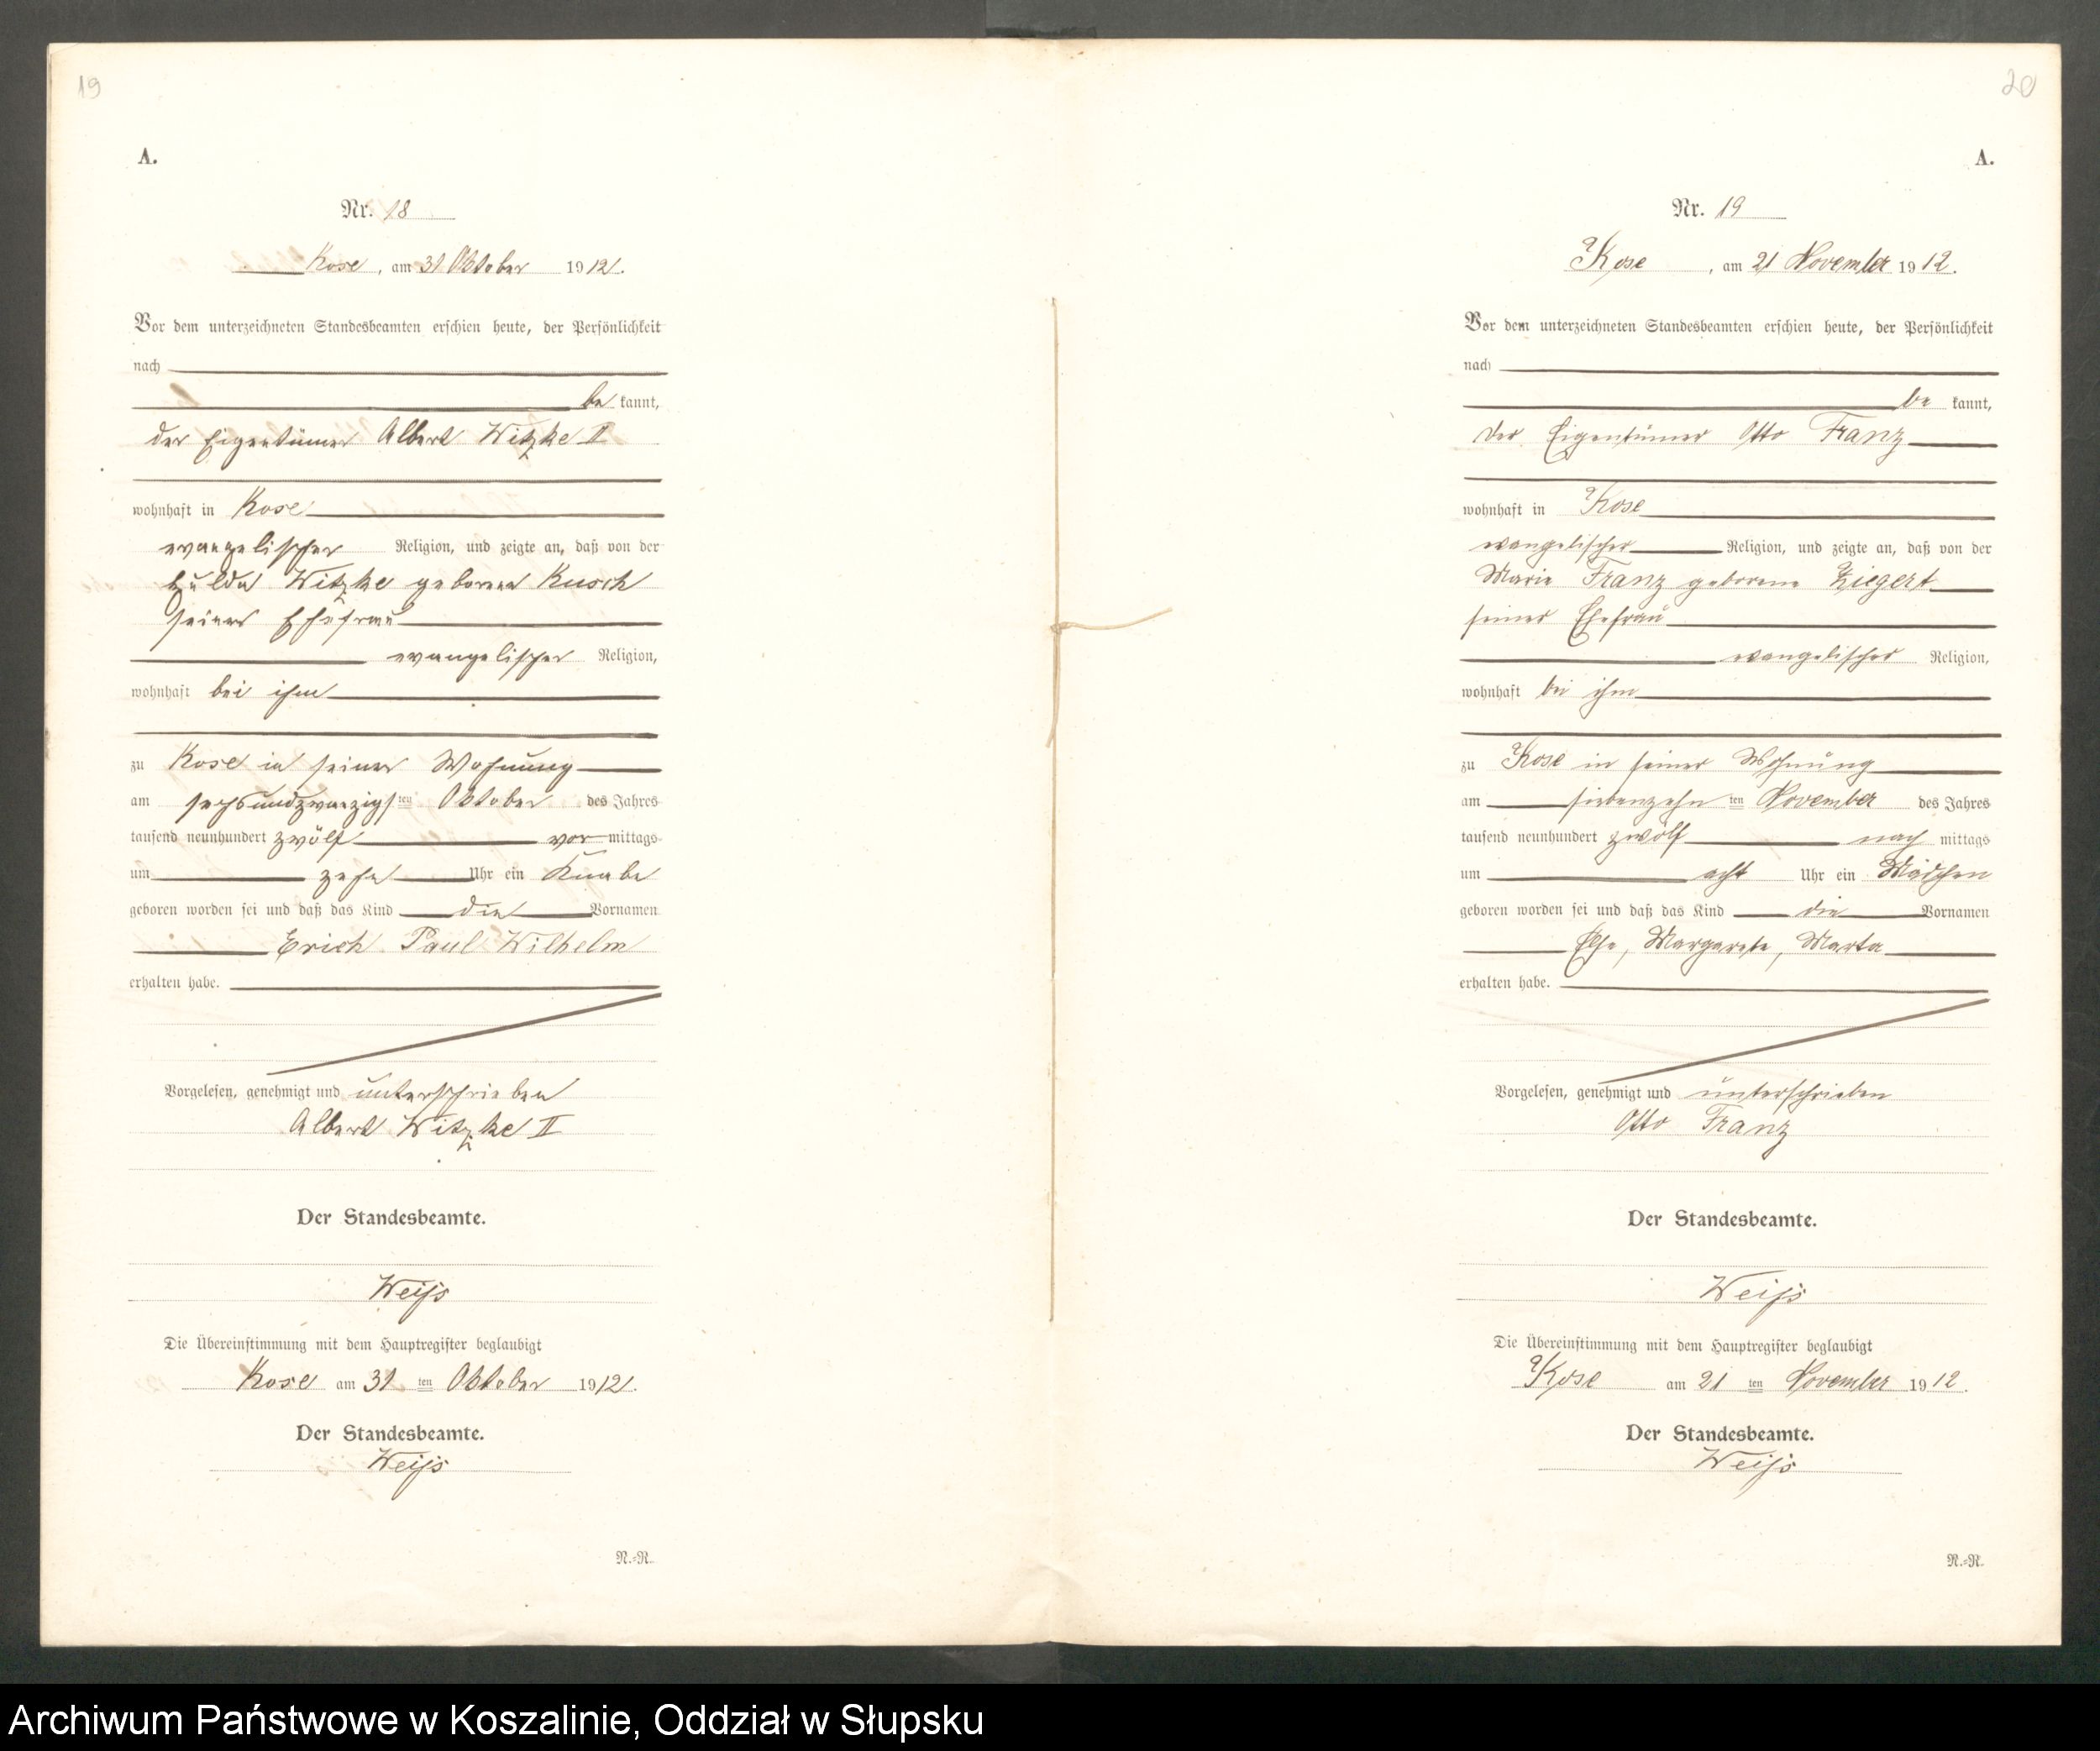 19
A.
Nr. 18
Kose, am 31 Oktober 1912.
Vor dem unterzeichneten Standesbeamten erschien heute, der Persönlichkeit
nach
be kannt,
der Eigentümer Albert Witzke II
wohnhaft in Kose
evangelischer Religion, und zeigte an, daß von der
Hulda Witzke geborene Kusch
seiner Ehefrau
evangelischer Religion,
wohnhaft bei ihm
zu Kose in seiner Wohnung
am sechsundzwanzigsten Oktober des Jahres
tausend neunhundert zwölf vor mittags
um zehn Uhr ein Knabe
geboren worden sei und daß das Kind die Vornamen
Erich Paul Wilhelm
erhalten habe.
Vorgelesen, genehmigt und unterschrieben
Albert Witzke II
Der Standesbeamte.
Weiß
Die Übereinstimmung mit dem Hauptregister beglaubigt
Kose am 31 ten Oktober 1912.
Der Standesbeamte.
Weiß
N.=N.
20
A.
Nr. 19
Kose, am 21 November 1912.
Vor dem unterzeichneten Standesbeamten erschien heute, der Persönlichkeit
nach
be kannt,
der Eigentümer Otto Franz
wohnhaft in Kose
evangelischer Religion, und zeigte an, daß von der
Marie Franz geborene Ziegert
seiner Ehefrau
evangelischer Religion,
wohnhaft bei ihm
zu Kose in seiner Wohnung
am siebenzehn ten November des Jahres
tausend neunhundert zwölf nach mittags
um acht Uhr ein Mädchen
geboren worden sei und daß das Kind die Vornamen
Else, Margarete, Marta
erhalten habe.
Vorgelesen, genehmigt und unterschrieben
Otto Franz
Der Standesbeamte.
Weiß
Die Übereinstimmung mit dem Hauptregister beglaubigt
Kose am 21 ten November 1912.
Der Standesbeamte.
Weiß
N.=N.
Archiwum Państwowe w Koszalinie, Oddział w Słupsku